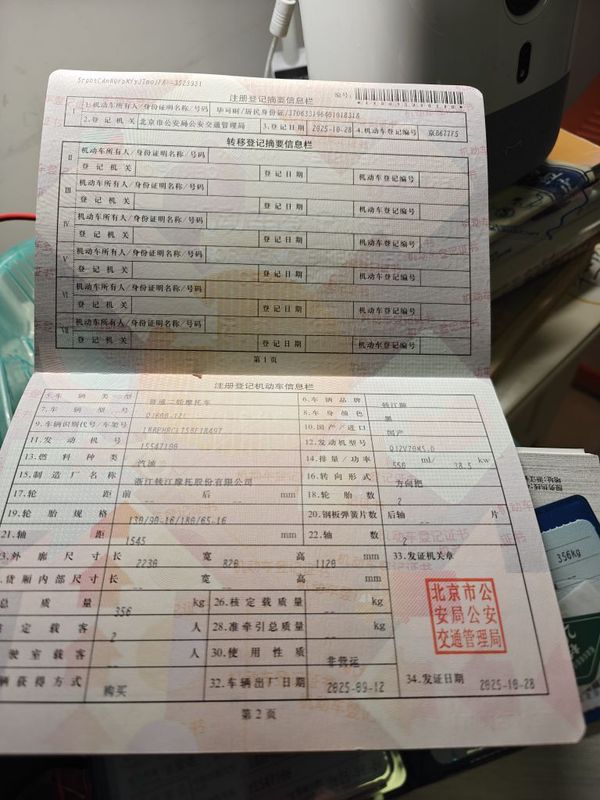 注册登记摘要信息栏
编号:
Ⅰ 1.机动车所有人/身份证明名称/号码
2.登记机关 北京市公安局公安交通管理局 3.登记日期 2025-10-28 4.机动车登记编号
转移登记摘要信息栏
Ⅱ 机动车所有人/身份证明名称/号码
登记机关 登记日期 机动车登记编号
Ⅲ 机动车所有人/身份证明名称/号码
登记机关 登记日期 机动车登记编号
Ⅳ 机动车所有人/身份证明名称/号码
登记机关 登记日期 机动车登记编号
Ⅴ 机动车所有人/身份证明名称/号码
登记机关 登记日期 机动车登记编号
Ⅵ 机动车所有人/身份证明名称/号码
登记机关 登记日期 机动车登记编号
Ⅶ 机动车所有人/身份证明名称/号码
登记机关 登记日期 机动车登记编号
第1页
注册登记机动车信息栏
5.车辆类型 普通二轮摩托车 6.车辆品牌 钱江牌
7.车辆型号 8.车身颜色 黑
9.车辆识别代号/车架号 10.国产/进口 国产
11.发动机号 12.发动机型号
13.燃料种类 汽油 14.排量/功率 550 ml/ 38.5 kw
15.制造厂名称 浙江钱江摩托股份有限公司 16.转向形式 方向把
17.轮距 前 后 mm 18.轮胎数 2
19.轮胎规格 130/90-16/180/65-16 20.钢板弹簧片数 后轴 -- 片
21.轴距 1545 mm 22.轴数 2
3.外廓尺寸 长 2230 宽 820 高 1120 mm 33.发证机关章
.货厢内部尺寸 长 -- 宽 -- 高 -- mm
总质量 356 kg 26.核定载质量 -- kg
定载客 2 人 28.准牵引总质量 -- kg
驶室载客 -- 人 30.使用性质 非营运
辆获得方式 购买 32.车辆出厂日期 2025-09-12 34.发证日期 2025-10-28
北京市公
安局公安
交通管理局
第2页
356Kg